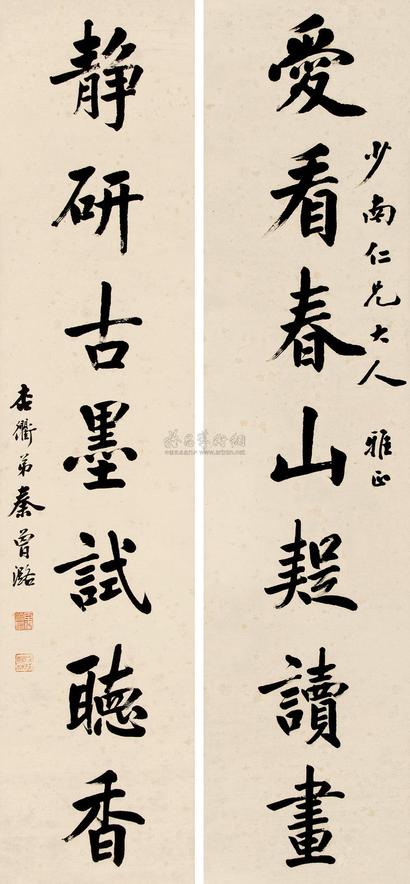 愛看春山疑讀畫
少南仁兄大人 雅正
静研古墨試聽香
杏衢弟秦曾潞
雅昌藝術網
www.artron.net